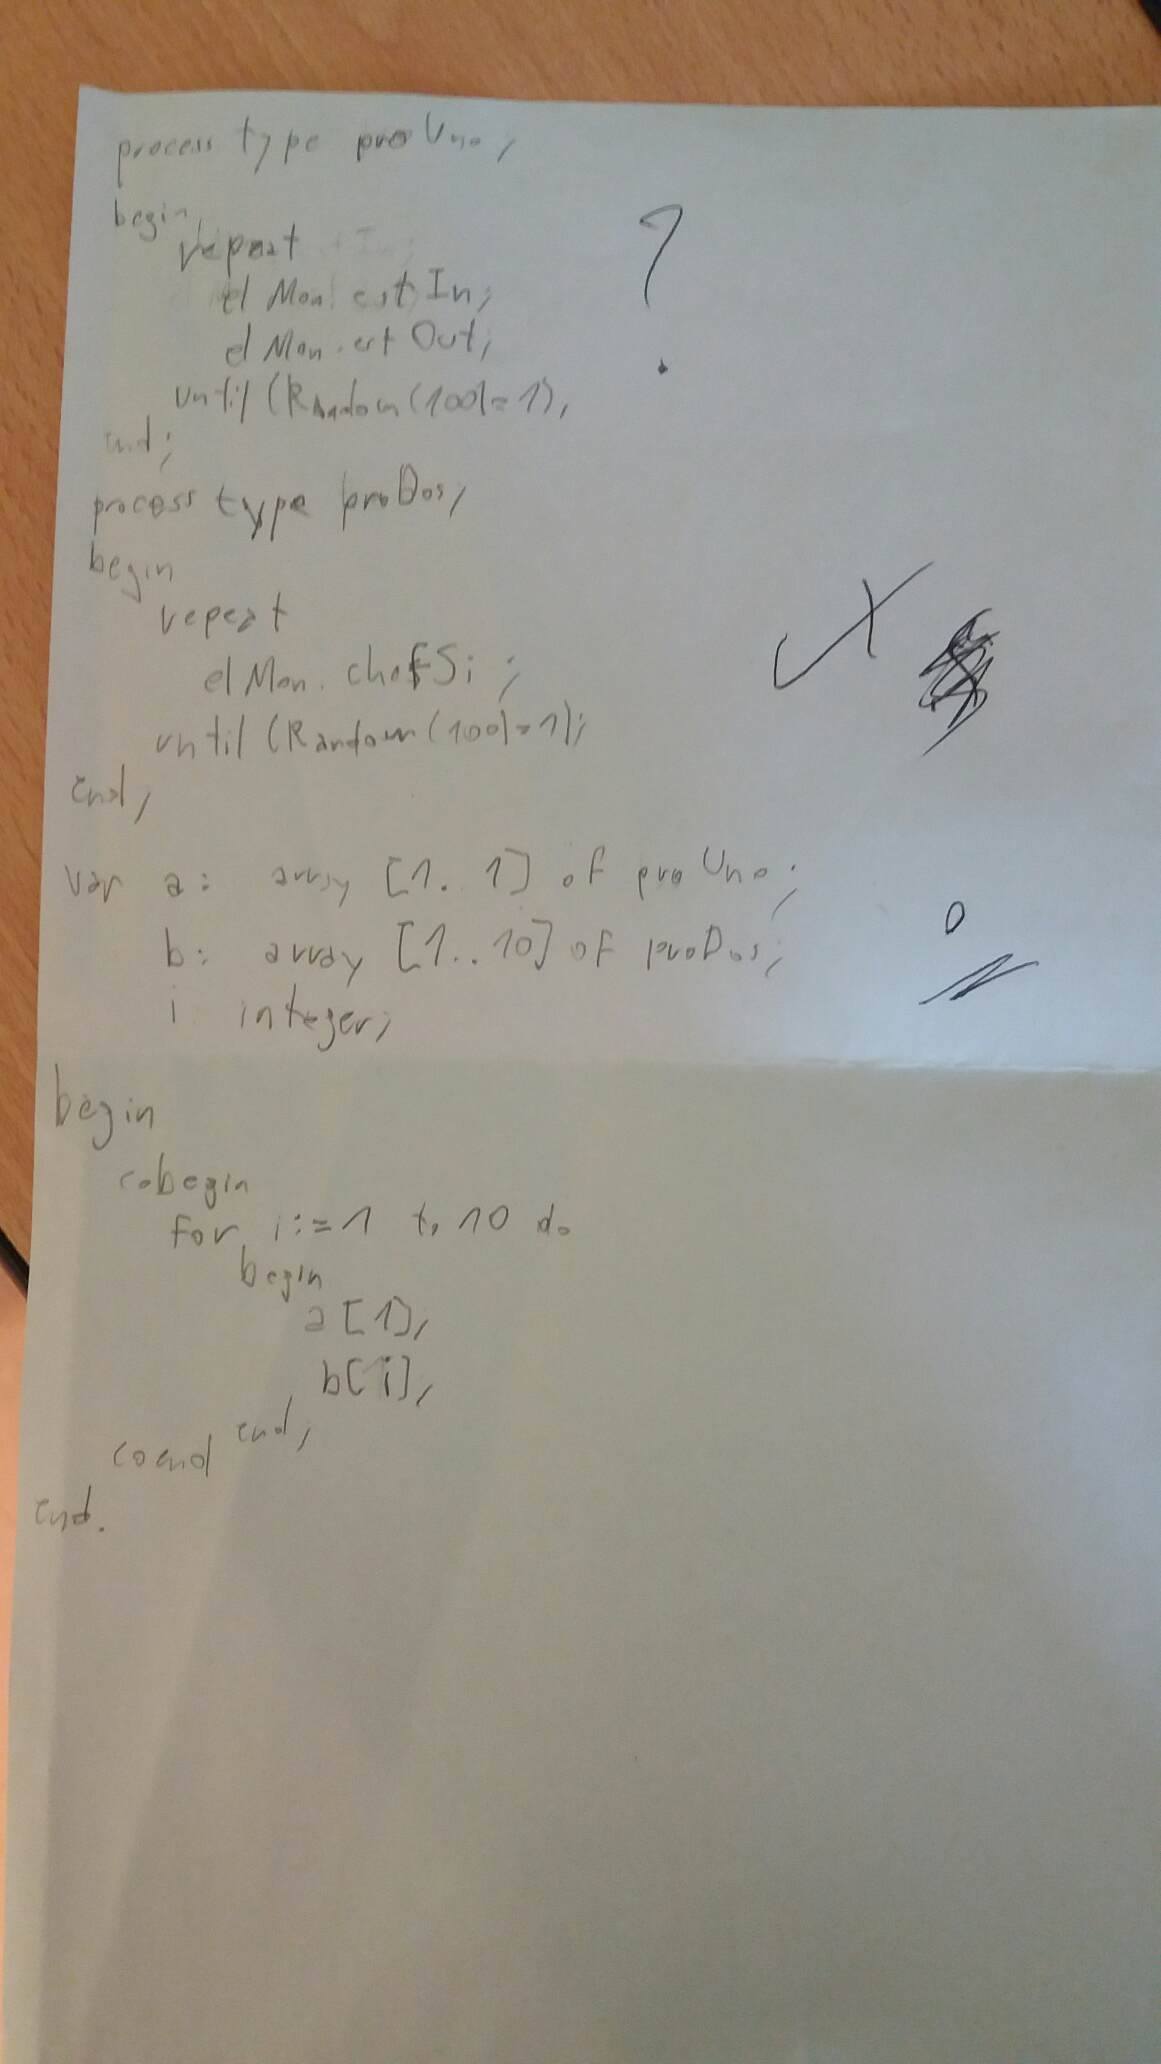 process type proUno;
begin
repeat
el Mon. est In;
el Mon. est Out;
until (Random(100)=1);
end;
?
process type proDos;
begin
repeat
el Mon. chefSi;
until (Random(100)=1);
end;
var a: array [1..1] of proUno;
b: array [1..10] of proDos;
i integer;
0
begin
cobegin
for i:=1 to 10 do
begin
a[1];
b[i];
end;
coend
end.